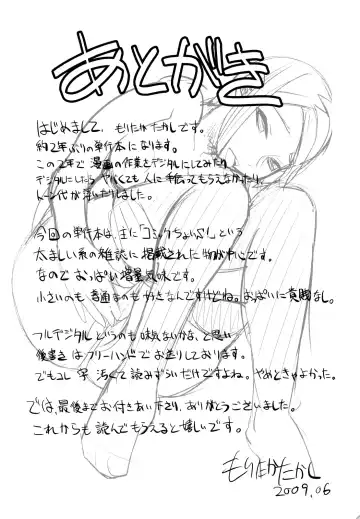 あとがき
はじめまして、もりたかたかしです。
約2年ぶりの単行本になります。
この2年で漫画の作業をデジタルにしてみたり
デジタルにしたら 人に手伝ってもらえなかったり、
トーン代が浮いたりしました。
今回の単行本は、主に「コミックちょいぷに」という
太ましい系の雑誌に掲載された物が中心です。
なので おっぱい増量気味です。
小さいのも普通なのも好きなんですけどね。おっぱいに貴賤なし。
フルデジタルというのも味気ないかな、と思い
後書きはフリーハンドでお送りしております。
でもコレ 字 汚くて読みずらいだけですよね。やめときゃよかった。
では、最後までお付きあい下さり、ありがとうございました。
これからも 読んでもらえると嬉しいです。
もりたかたかし
2009.06